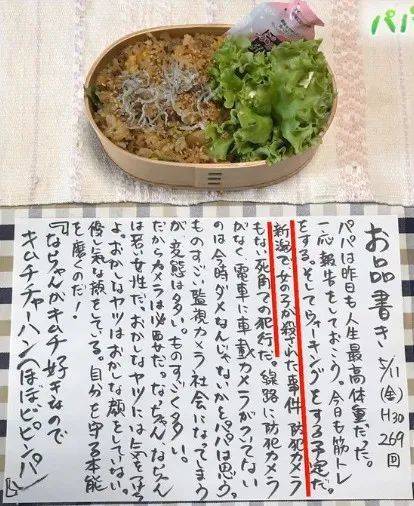 パパ
お品書き 5/11(金) H30 269回
パパは昨日も人生最高体重だった。
一応報告をしておこう。今日も筋トレ
をする。そしてウォーキングをする予定だ。
新潟で女の子が殺された事件、防犯カメラ
もない死角での犯行だ。線路に防犯カメラ
がなく電車に車載カメラがついてない
のは今時ダメなんじゃないかとパパは思う。
ものすごい監視カメラ社会になってしまう
が、変態は多い。ものすごく多い。
だからカメラは必要だ。なっちゃん、ならん
は若い女性だ。おかしなヤツには気をつけろ
よ。おかしなヤツはおかしな顔をしていない。
優し気な顔をしてる。自分を守る本能
を磨くのだ!
『ならちゃんがキムチ好きなので
キムチチャーハン(ほぼビビンパ)』